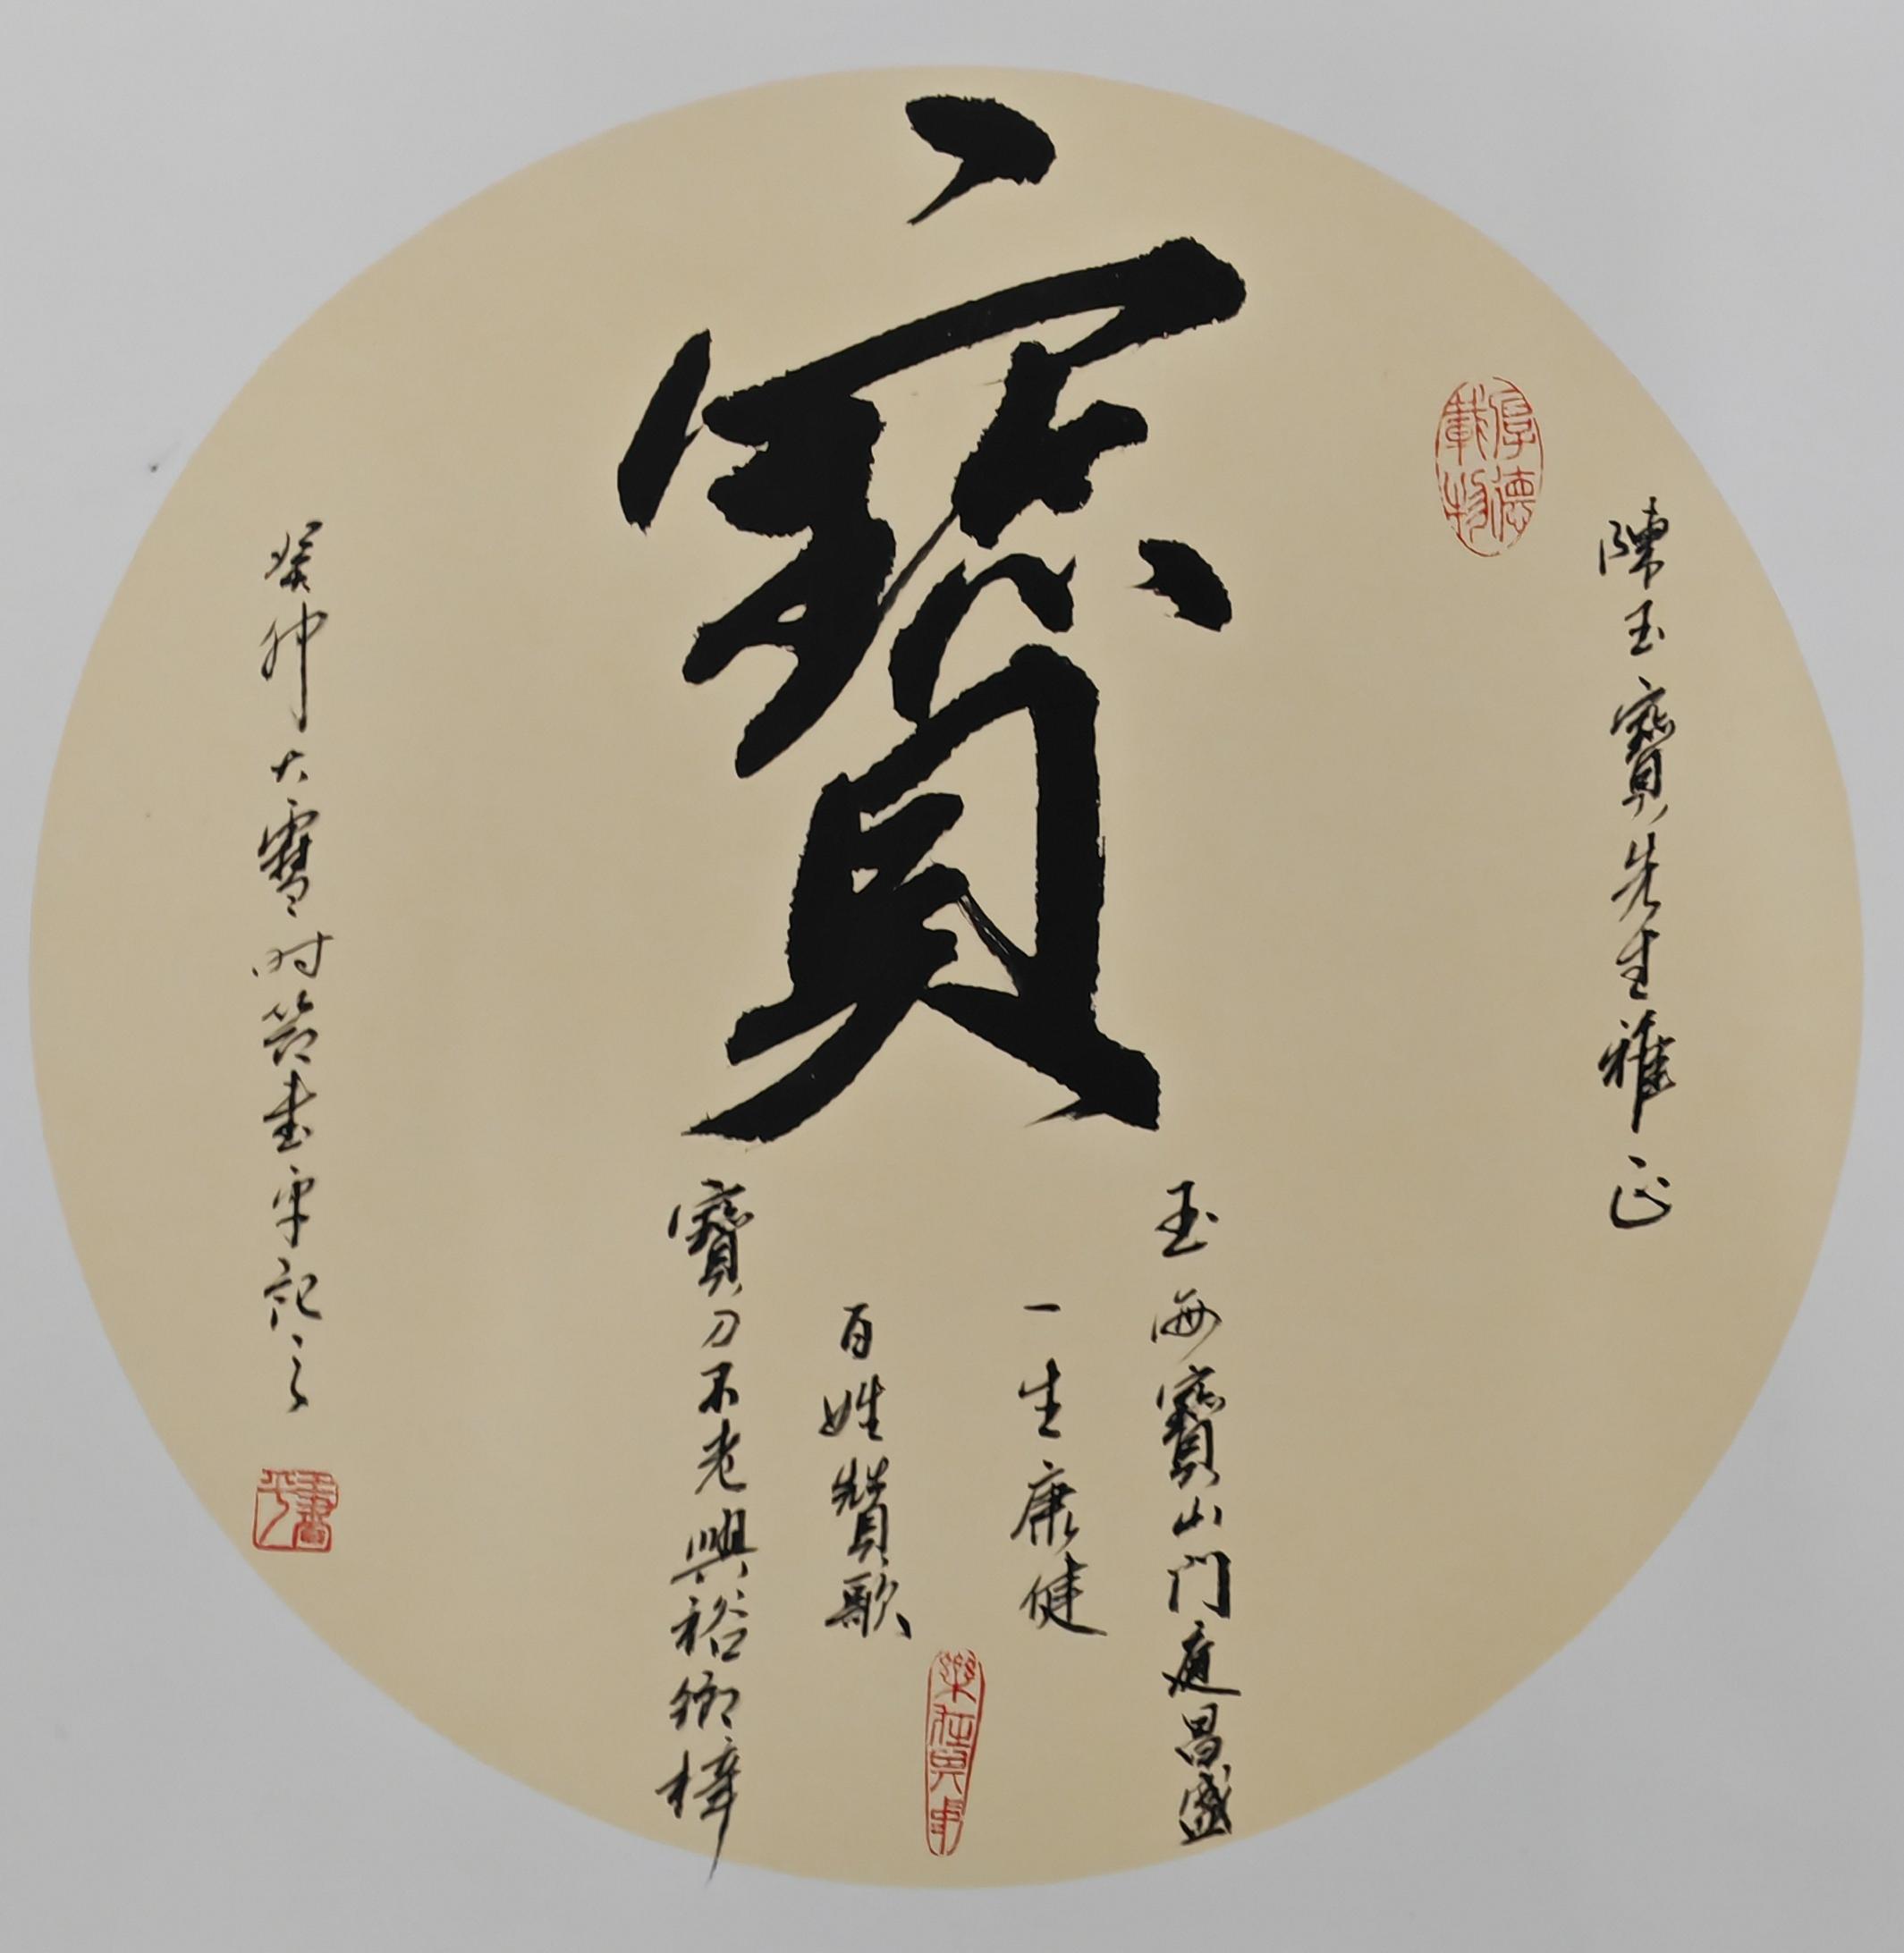 陳玉寶先生雅正
厚德載物
寶
玉海寶山门庭昌盛
一生康健
百姓贊歌
寶刀不老興裕鄉梓
樂在其中
癸卯大雪时節書平記之